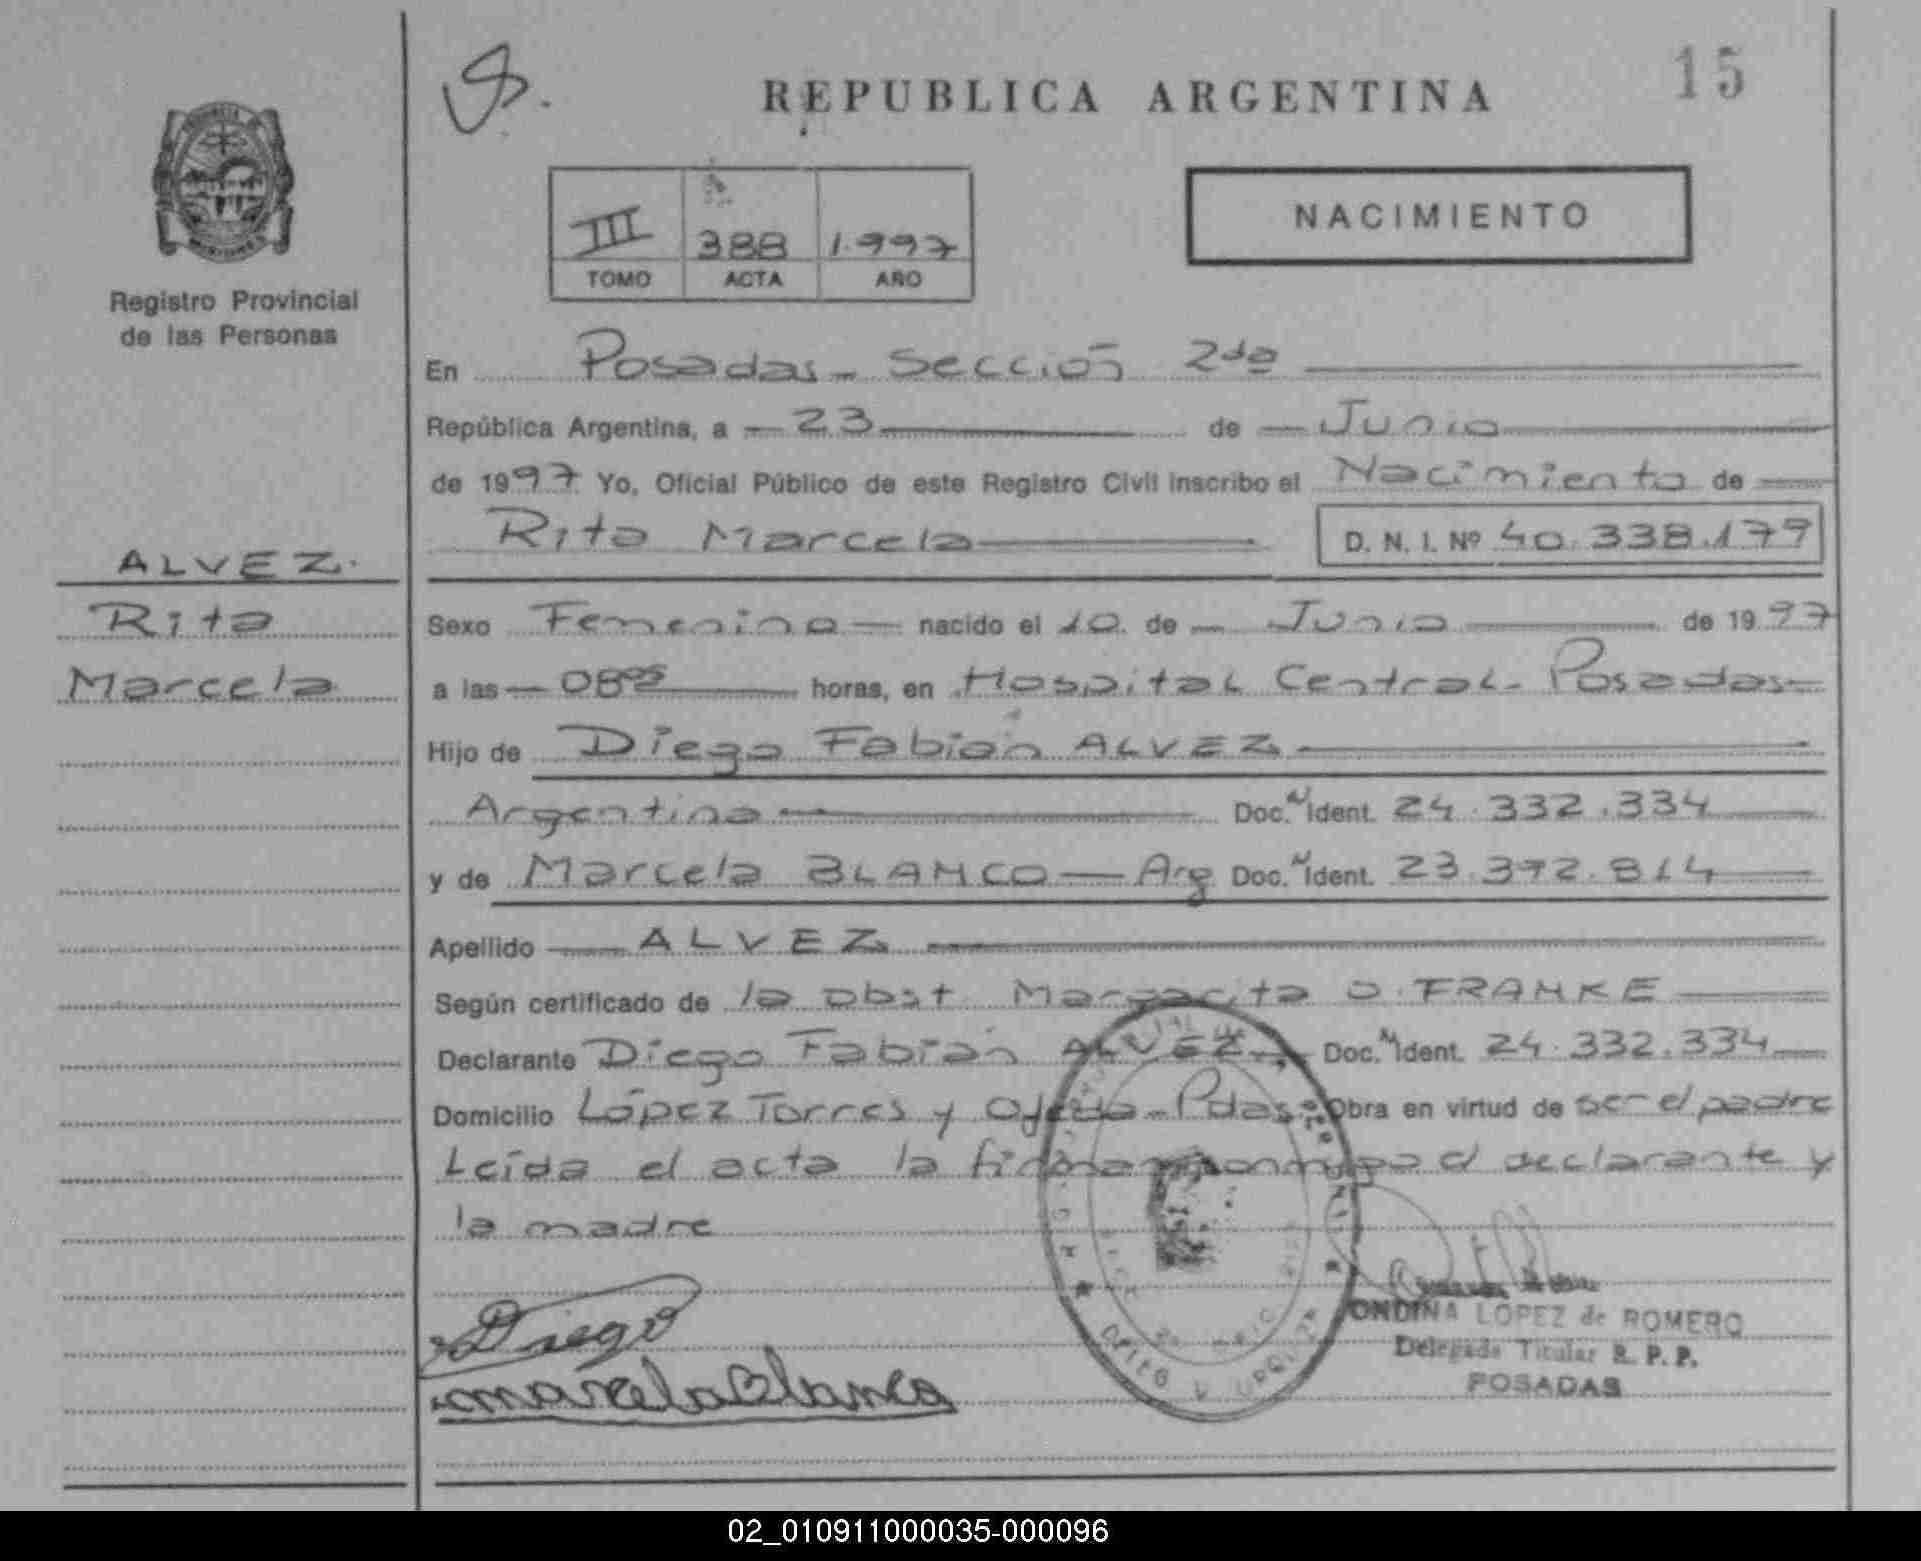 15
REPUBLICA ARGENTINA
NACIMIENTO
III 388 1.997
TOMO ACTA AÑO
Registro Provincial
de las Personas
ALVEZ.
Rita
Marcela
En Posadas - Sección 2da
República Argentina, a 23 de Junio
de 1997 Yo, Oficial Público de este Registro Civil inscribo el Nacimiento de
Rita Marcela D. N. I. Nº 40.338.179
Sexo Femenino nacido el 10 de Junio de 1997
a las 08 horas, en Hospital Central - Posadas
Hijo de Diego Fabián ALVEZ
Argentina Doc. Ident. 24.332.334
y de Marcela BLANCO - Arg Doc. Ident. 23.372.814
Apellido ALVEZ
Según certificado de la obst Margarita O. FRANKE
Declarante Diego Fabián ALVEZ Doc. Ident. 24.332.334
Domicilio López Torres y Ojeda - Pdas. Obra en virtud de ser el padre
Leída el acta la firman conmigo el declarante y
la madre
Diego
Marcela Blanco
ONDINA LOPEZ de ROMERO
Delegada Titular R. P. P.
POSADAS
02_010911000035-000096